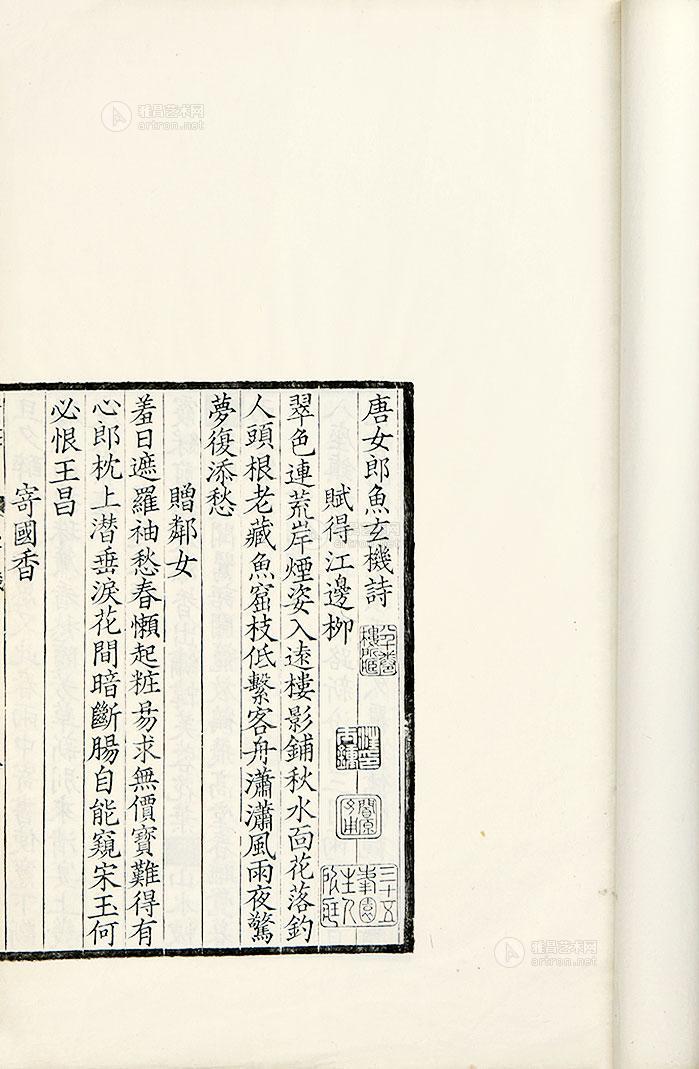 唐女郎魚玄機詩
賦得江邊柳
翠色連荒岸煙姿入遠樓影鋪秋水面花落釣
人頭根老藏魚窟枝低繫客舟瀟瀟風雨夜驚
夢復添愁
贈鄰女
羞日遮羅袖愁春懶起粧易求無價寶難得有
心郎枕上潛垂淚花間暗斷腸自能窺宋玉何
必恨王昌
寄國香
雅昌艺术网
artron.net
雅昌艺术网
artron.net